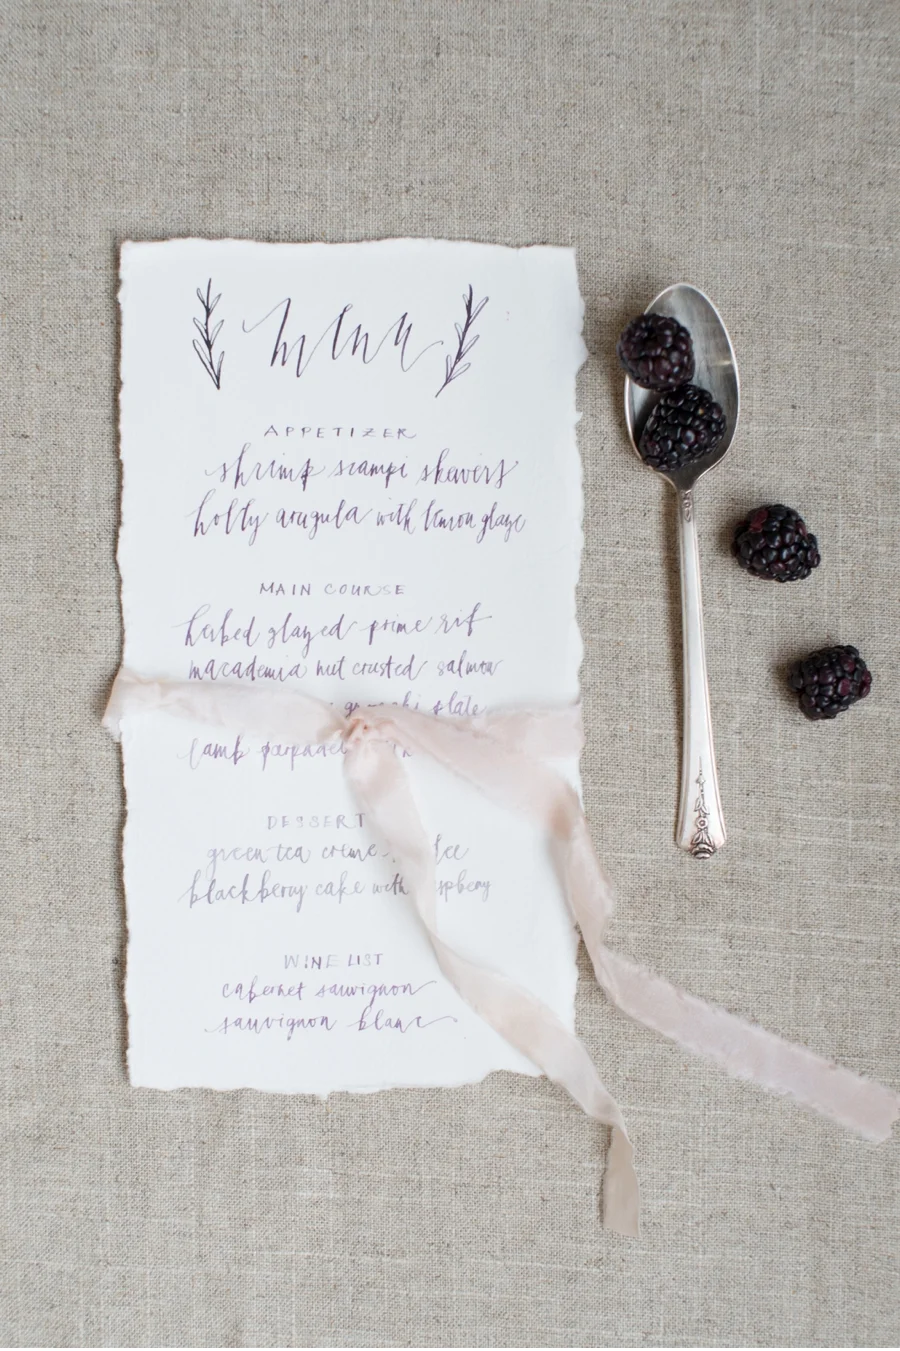 menu
APPETIZER
shrimp scampi skewers
holly arugula with lemon glaze
MAIN COURSE
herbed glazed prime rib
macadamia nut crusted salmon
lamb
DESSERT
green tea creme
blackberry cake with
WINE LIST
cabernet sauvignon
sauvignon blanc